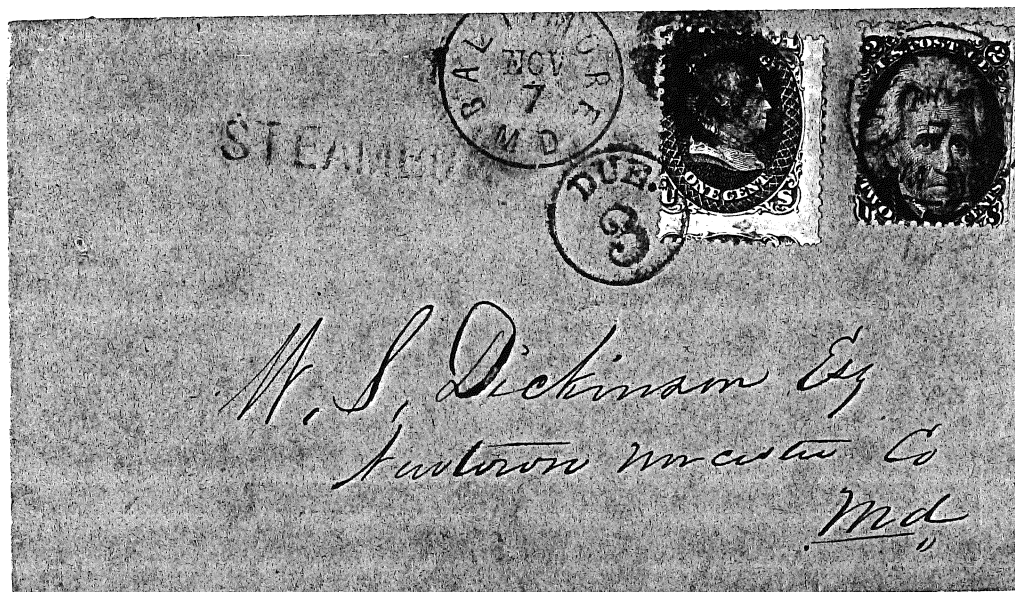 BALTIMORE
NOV
7
MD
STEAMBOAT
DUE.
3
ONE CENT
U.S. POST
TWO CENTS
W. S. Dickinson Esq
Newtown Worcester Co
Md